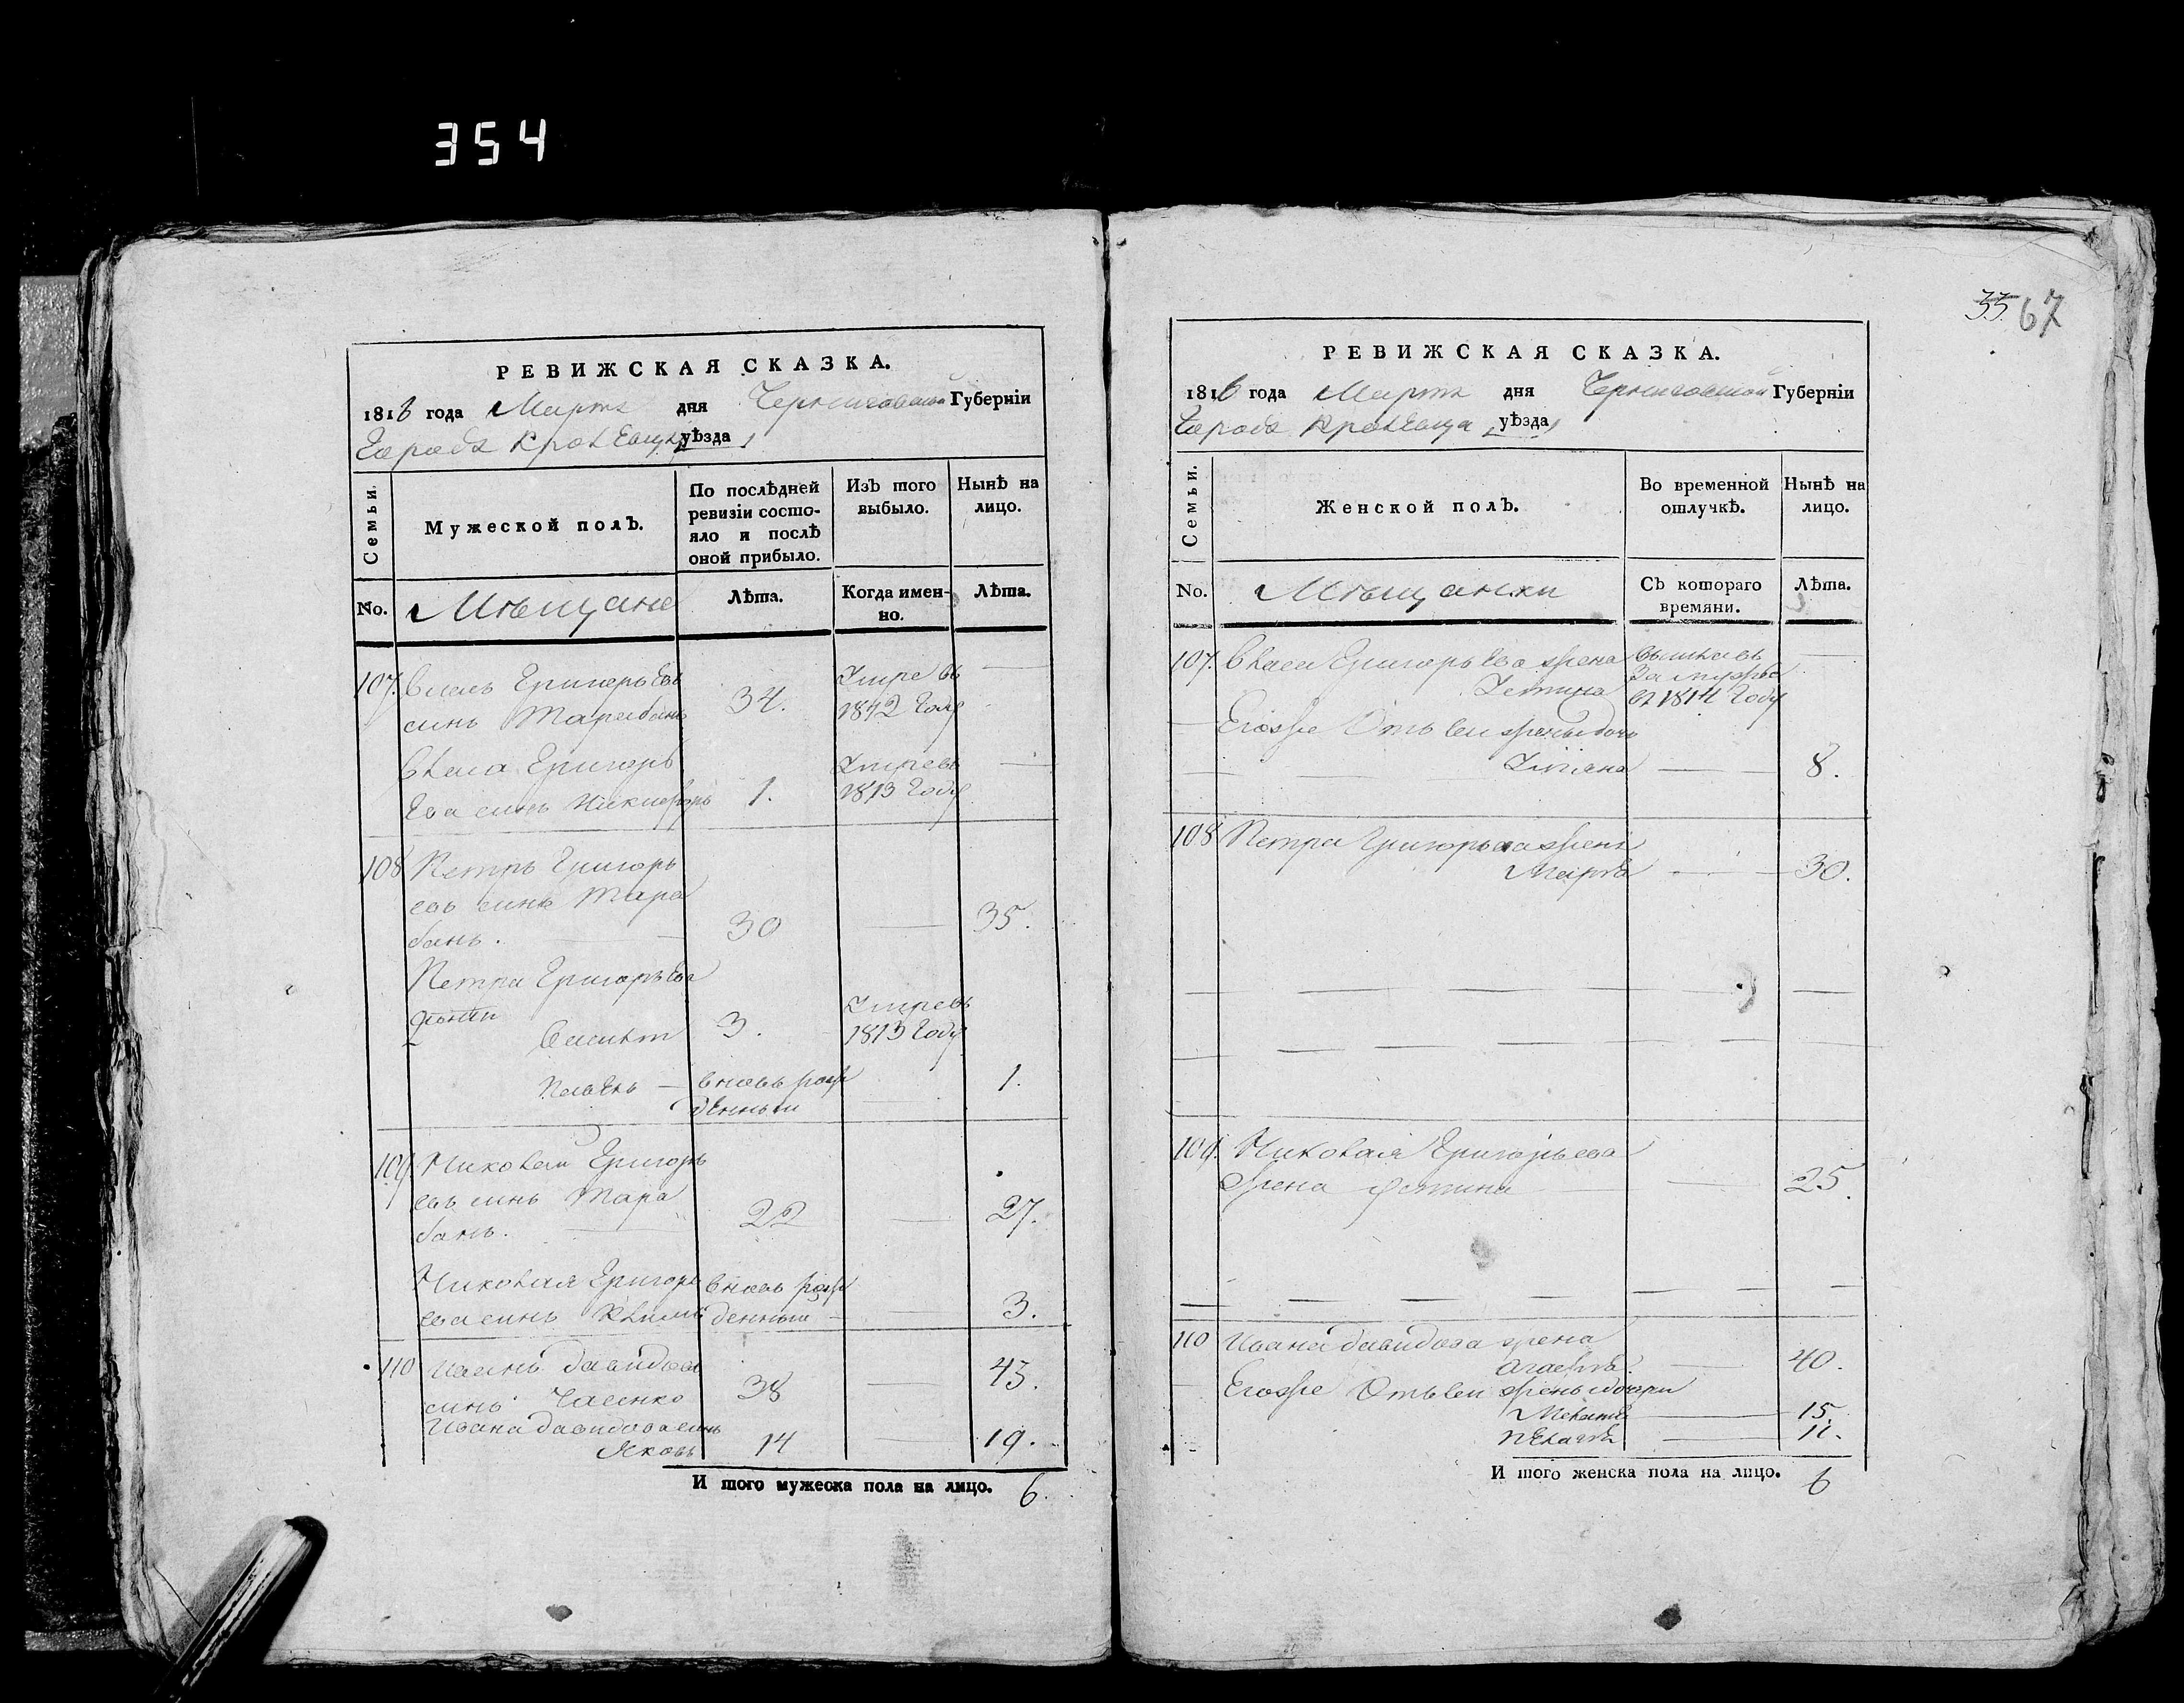 354
РЕВИЖСКАЯ СКАЗКА.
1816 года Марта дня Черниговской Губерніи
Города Кролевца уѣзда
Семьи.
Мужеской полъ.
По послѣдней ревизіи состо-
яло и послѣ
оной прибыло.
Изъ того
выбыло.
Нынѣ на
лицо.
No.
Мѣщане
Лѣта.
Когда имен-
но.
Лѣта.
107. Григорьевъ 34. Умре въ —
синъ Тарабанъ 1812 Году
Григорь Умре въ —
ева синъ Никифоръ 1. 1813 Году
108 Петръ Григорь
евъ синъ Тара
банъ. — 30 — 35.
Петра Григорьева
3. Умре въ
1813 Году
— вновь рож — 1.
денный
109. Николай Григорь
евъ синъ Тара
банъ. — 22 — 27.
Николая Григорь вновь рож
ева синъ Климъ денный — 3.
110 Иванъ Давидовъ 43.
синъ 38 —
Ивана Давидова синъ
Яковъ 14 — 19.
И того мужеска пола на лицо. 6.
33 67
РЕВИЖСКАЯ СКАЗКА.
1816 года Марта дня Черниговской Губерніи
Города Кролевца уѣзда
Семьи.
Женской полъ.
Во временной
отлучкѣ.
Нынѣ на
лицо.
No.
Мѣщанки
Съ котораго
времяни.
Лѣта.
107. Григорьева жена —
за мужъ
въ 1814 Году
Егожъ Отъ сей жены дочь
Уліяна — 8.
108 Петра Григорьева жена
Марфа — 30.
109. Николая Григорьева
Жена — 25.
110 Ивана Давидова жена
Агафія — 40.
Егожъ Отъ сей жены дочери
— 15.
Пелагѣя — 11.
И того женска пола на лицо. 6